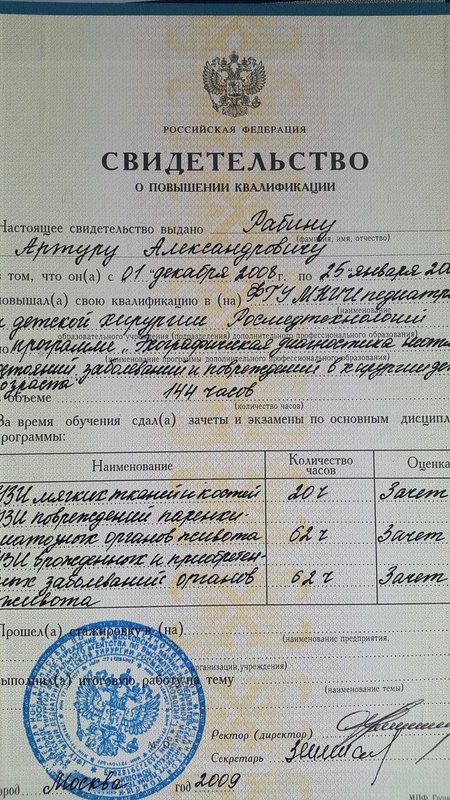 РОССИЙСКАЯ ФЕДЕРАЦИЯ
СВИДЕТЕЛЬСТВО
О ПОВЫШЕНИИ КВАЛИФИКАЦИИ
Настоящее свидетельство выдано Рабину
(фамилия, имя, отчество)
Артуру Александровичу
в том, что он(а) с „01" декабря 2008г. по „25" января 20
повышал(а) свою квалификацию в (на) ФГУ МНИИ педиатр
(наименование
и детской хирургии Росмедтехнологий
образовательного учреждения (подразделения) дополнительного профессионального образования)
по программе „ диагностика
(наименование программы дополнительного профессионального образования)
заболеваний и повреждений в хирургии дет
возраста
в объеме 144 часов
(количество часов)
За время обучения сдал(а) зачеты и экзамены по основным дисципл
программы:
Наименование Количество часов Оценка
УЗИ мягких тканей и костей 20 ч Зачет
УЗИ повреждений паренхи-
матозных органов живота 62 ч Зачет
УЗИ врожденных и приобретен-
ных заболеваний органов 62 ч Зачет
живота
Прошел(а) стажировку в (на)
(наименование предприятия,
организации, учреждения)
выполнил(а) итоговую работу на тему
(наименование темы)
М. П.
Ректор (директор)
Секретарь
Город Москва год 2009